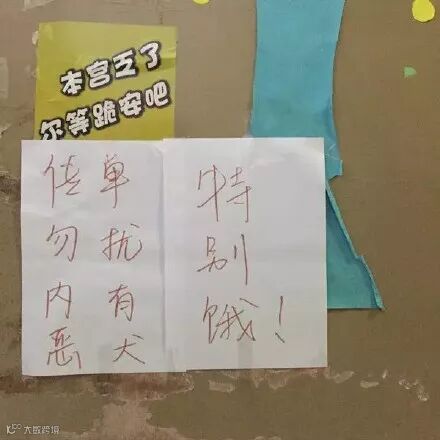 本宫乏了
尔等跪安吧
传单
勿扰
内有
恶犬
特
别
饿！
大数跨境